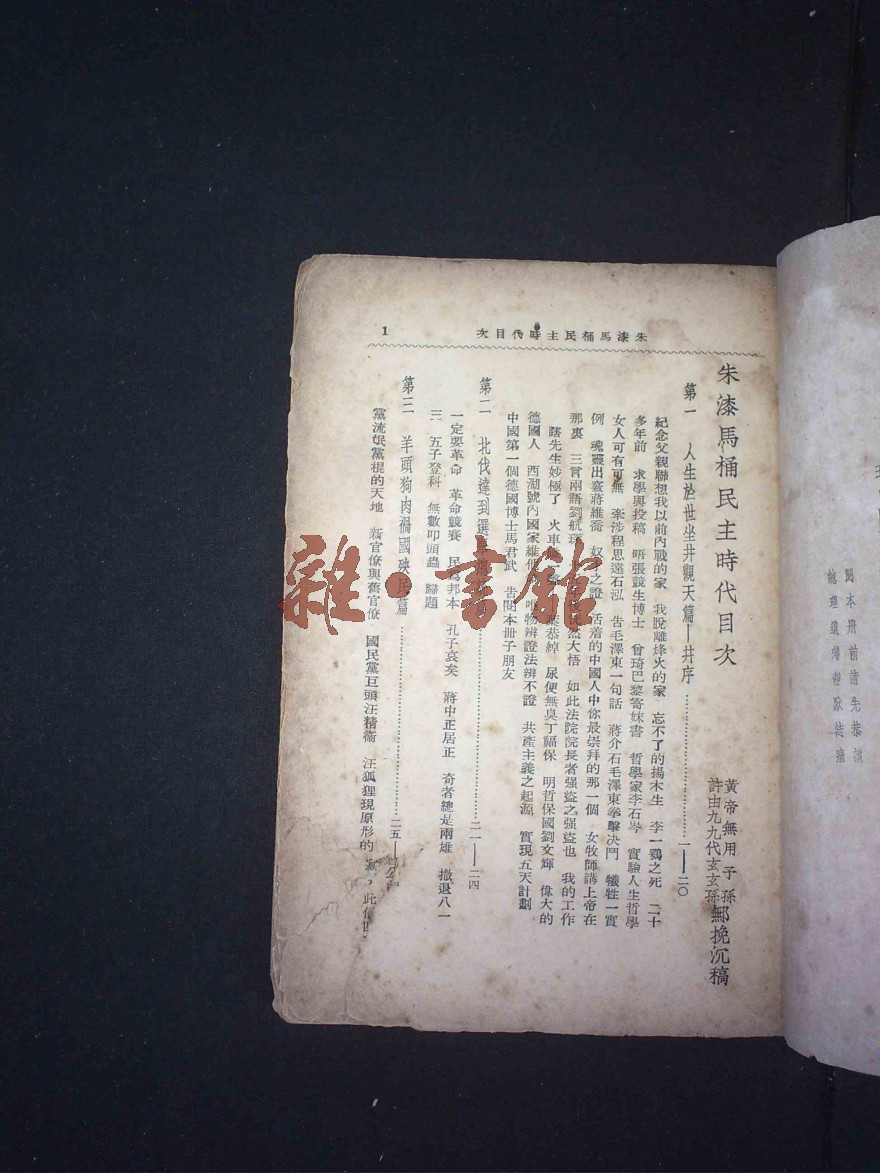 朱漆馬桶民主時代目次
1
朱漆馬桶民主時代目次
黃帝無用子孫
許由九九代玄玄孫
鄒挽沉稿
第一 人生於世坐井觀天篇—井序…………一—二〇
紀念父親聯想我以前內戰的家 我脫離烽火的家 忘不了的揚木生 李一鷃之死 二十
多年前 求學與投稿 晤張競生博士 曾琦巴黎寄妹書 哲學家李石岑 實驗人生哲學
女人可有可無 牽涉程思遠石泓 告毛澤東一句話 蔣介石毛澤東拳擊決鬥 犧牲一實
例 魂靈出竅蔣維喬 奴 之證 活着的中國人中你最崇拜的那一個 女牧師講上帝在
那裏 三言兩語劉航琛 然大悟 如此法院院長者强盜之强盜也 我的工作
瞎先生妙極了 火車 葉恭綽 尿便無臭丁福保 明哲保國劉文輝 偉大的
德國人 西湖號內國家維 唯物辨證法辨不證 共產主義之起源 實現五天計劃
中國第一個德國博士馬君武 告閱本册子朋友
第二 北伐達到選 …………二一—二四
一定要革命 革命競賽 民爲邦本 孔子哀矣 蔣中正居正 奇者總是兩雄 撤退八一
三 五子登科 無數叩頭蟲 歸題
第三 羊頭狗肉禍國殃民篇…………二五—
黨流氓黨棍的天地 新官僚與舊官僚 國民黨巨頭汪精衞 汪狐狸現原形的 ，此
閱本册前請先恭讀
總理遺囑靜默誌哀
雜·書館